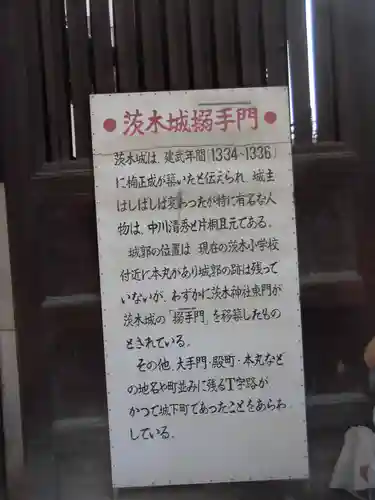 ●茨木城搦手門●
茨木城は、建武年間(1334~1336)
に楠正成が築いたと伝えられ、城主
はしばしば変わったが特に有名な人
物は、中川清秀と片桐且元である。
城郭の位置は、現在の茨木小学校
付近に本丸があり城郭の跡は残って
いないが、わずかに茨木神社東門が
茨木城の「搦手門」を移築したもの
とされている。
その他、大手門・殿町・本丸などと
の地名や町並みに残るT字路が
かつて城下町であったことをあらわ
している。